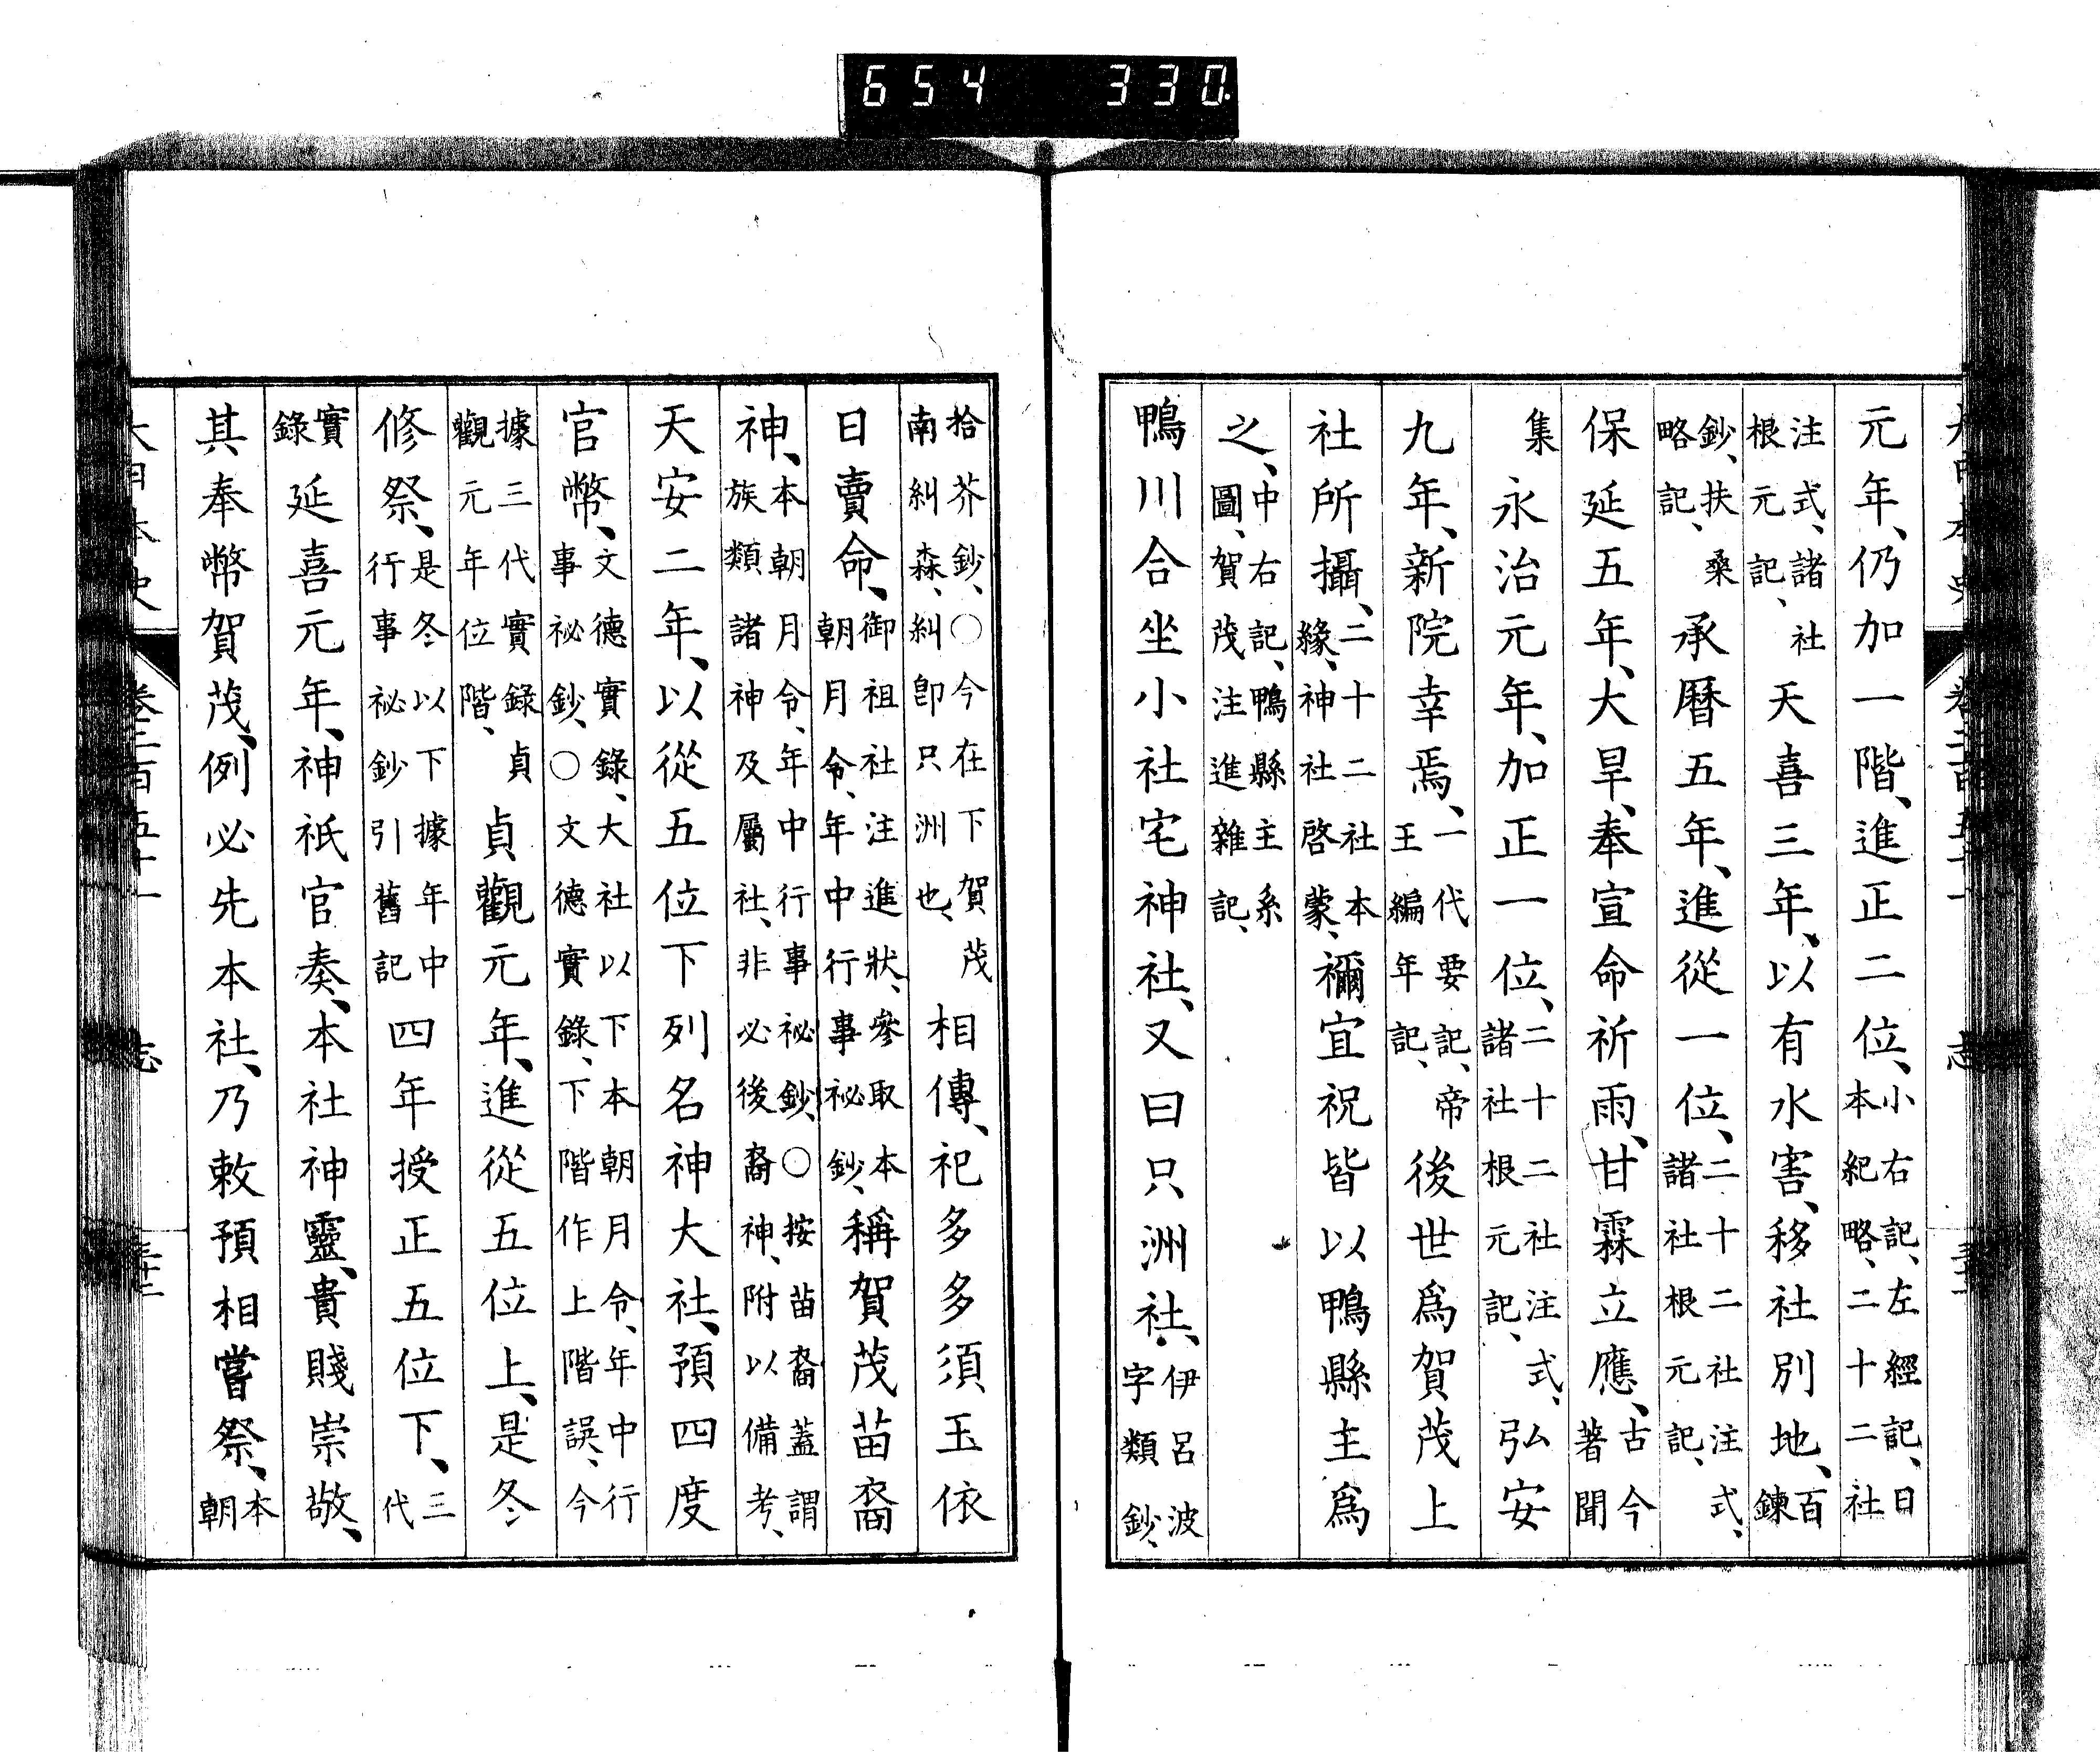 元年、仍加一階、進正二位、小右記、左經記、日本紀略、二十二社
注式、諸社根元記、天喜三年、以有水害、移社別地、百鍊
鈔、扶桑略記、承曆五年、進從一位、二十二社注式、諸社根元記、
保延五年、大旱、奉宣命祈雨、甘霖立應、古今著聞
集永治元年、加正一位、二十二社注式、諸社根元記、弘安
九年、新院幸焉、一代要記、帝王編年記、後世爲賀茂上
社所攝、二十二社本緣、神社啓蒙、禰宜祝皆以鴨縣主爲
之、中右記、鴨縣主系圖、賀茂注進雜記、
鴨川合坐小社宅神社、又曰只洲社、伊呂波字類鈔、
拾芥鈔、○今在下賀茂南糾森、糾卽只洲也、相傳、祀多多須玉依
日賣命、御祖社注進狀、參取本朝月令、年中行事祕鈔、稱賀茂苗裔
神、本朝月令、年中行事祕鈔、○按苗裔蓋謂族類諸神及屬社、非必後裔神、附以備考、
天安二年、以從五位下列名神大社、預四度
官幣、文德實錄、大社以下本朝月令、年中行事祕鈔、○文德實錄、下階作上階誤、今
據三代實錄貞觀元年位階、貞觀元年、進從五位上、是冬
修祭、是冬以下據年中行事祕鈔引舊記四年授正五位下、三代
實錄延喜元年、神祇官奏、本社神靈、貴賤崇敬、
其奉幣賀茂、例必先本社、乃敕預相嘗祭、本朝
大日本史 卷二百五十一 志
654 330